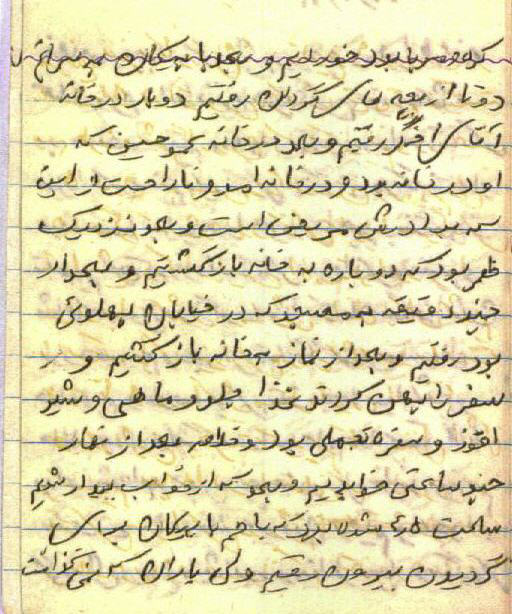 که مربا بود خوردیم و بعد با پیکان به سراغ
دوتا از بچه های کودک رفتیم دوبار در خانه
آقای افگر رفتیم و بعد در خانه عمو حسین که
او در خانه بود و در خانه امد و ناراحت از این
که برادرش مریض است و بعد نزدیک
ظهر بود که دوباره به خانه بازگشتیم و بعد از
چند دقیقه به مسجد که در خیابان پهلوی
بود رفتیم و بعد از نماز به خانه بازگشتیم و
سفره را پهن کردند غذا پلو و ماهی و شیر
و سفره تجملی بود و خلاصه بعد از نهار
چند ساعتی خوابیدیم و بعد که از خواب بیدار شدیم
ساعت ۵ شده بود که باهم با پیکان برای
گردیدن بیرون رفتیم ولی باران که نمی گذاشت